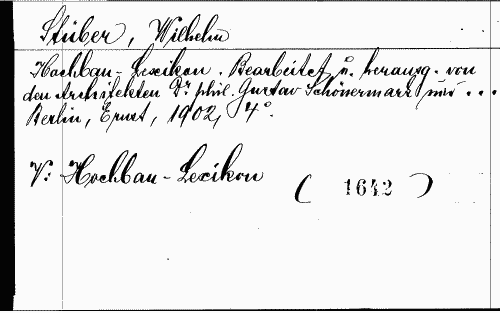 Stüber, Wilhelm
Hochbau-Lexikon. Bearbeitet u. herausg. von
den Architekten Dr. phil. Gustav Schönermark und ...
Berlin, Ernst, 1902, 4°.
V: Hochbau-Lexikon
( 1642 )